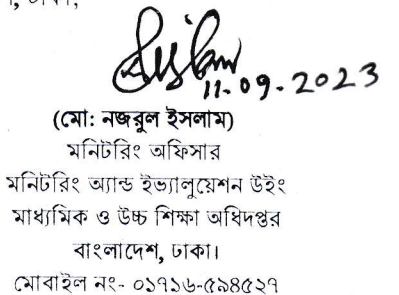 11-09-2023
(মো: নজরুল ইসলাম)
মনিটরিং অফিসার
মনিটরিং অ্যান্ড ইভ্যালুয়েশন উইং
মাধ্যমিক ও উচ্চ শিক্ষা অধিদপ্তর
বাংলাদেশ, ঢাকা।
মোবাইল নং- ০১৭১৬-৫৯৪৫২৭